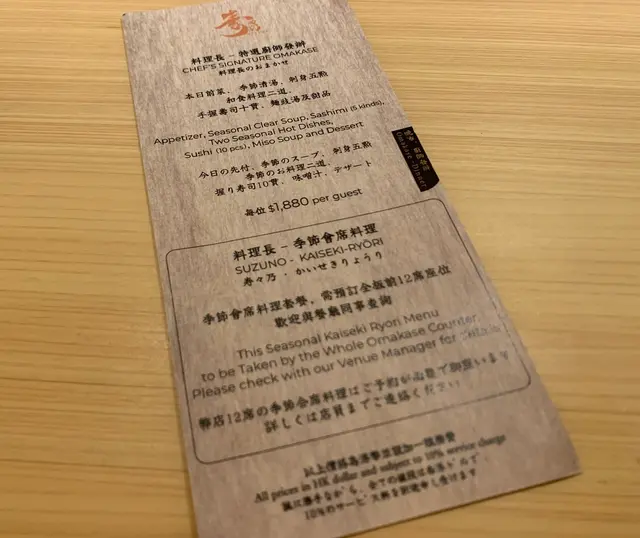 料理長 - 特選廚師發辦
CHEF'S SIGNATURE OMAKASE
料理長のおまかせ
本日前菜、季節清湯、刺身五點
和食料理二道、
手握壽司十貫、麵豉湯及甜品
Appetizer, Seasonal Clear Soup, Sashimi (5 kinds),
Two Seasonal Hot Dishes,
Sushi (10 pcs), Miso Soup and Dessert
今日の先付、季節のスープ、刺身五點
季節のお料理二道、
握り寿司10貫、味噌汁、デザート
每位 $1,880 per guest
料理長 - 季節會席料理
SUZUNO - KAISEKI-RYŌRI
寿々乃 - かいせきりょうり
季節會席料理套餐，需預訂全板前12席座位
歡迎與餐廳同事查詢
This Seasonal Kaiseki Ryori Menu
to be Taken by the Whole Omakase Counter,
Please check with our Venue Manager for Details
弊店12席の季節会席料理はご予約が必要で御座います
詳しくは店員までご連絡ください
以上價格為港幣並設加一服務費
All prices in HK dollar and subject to 10% service charge
10%のサービス料を